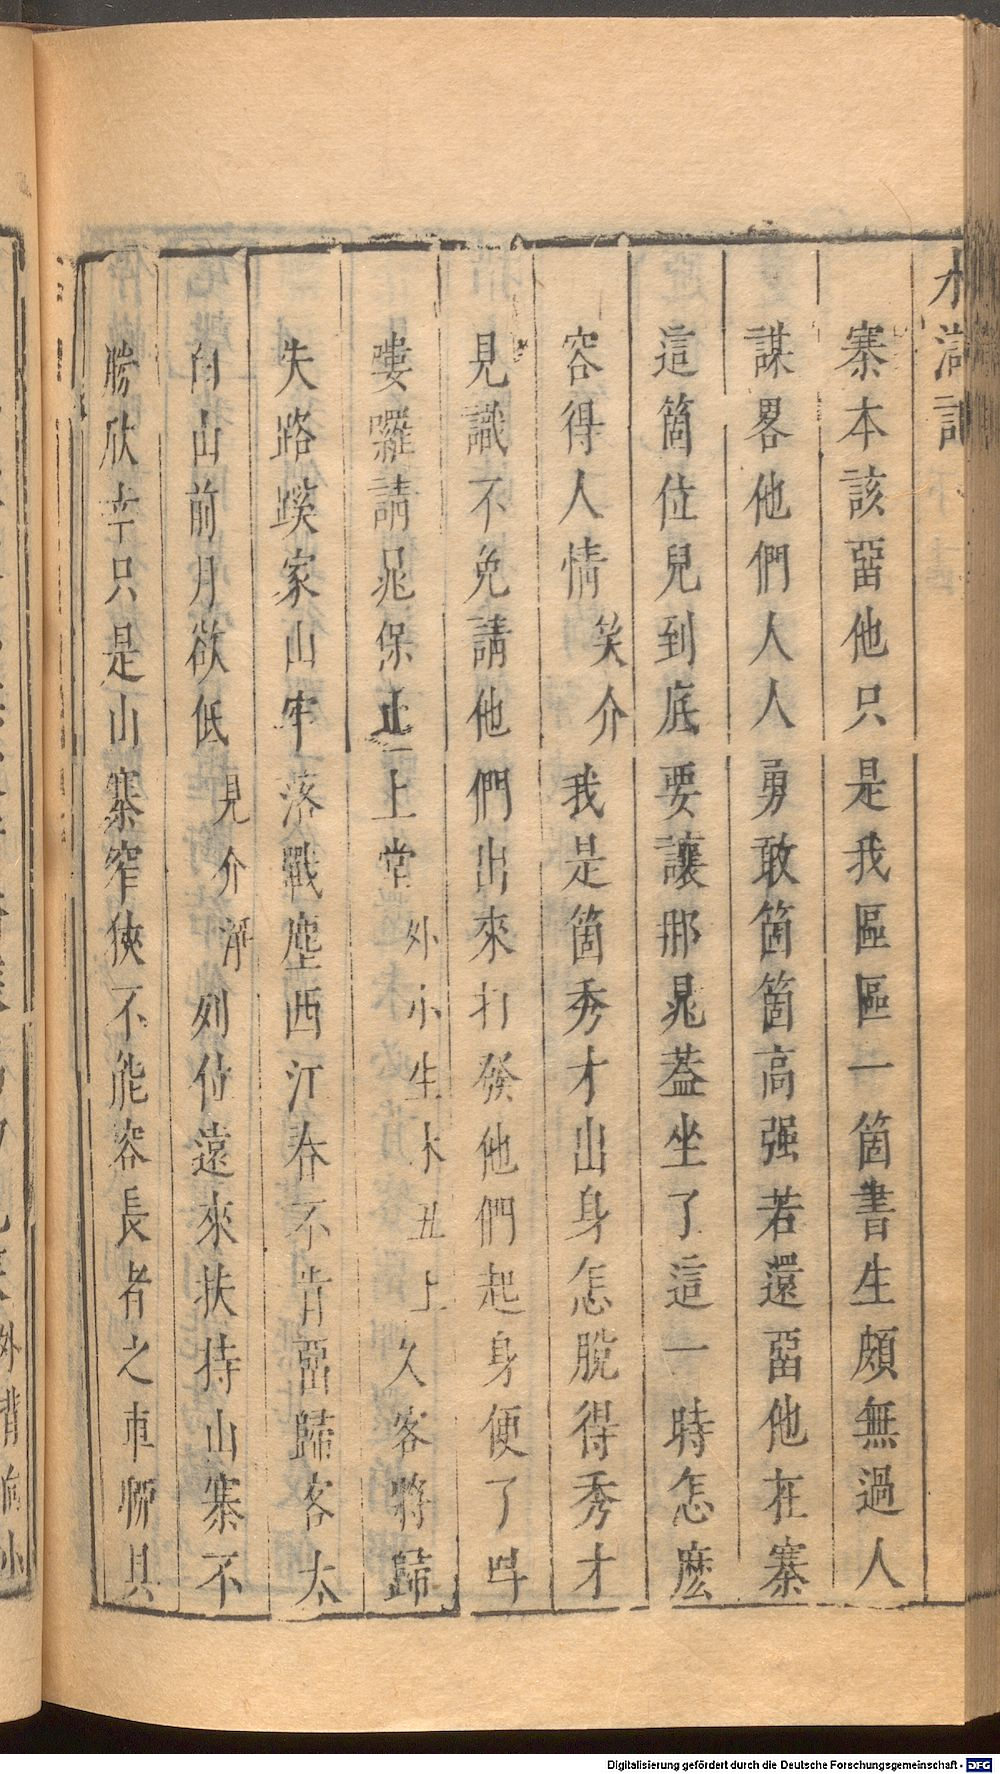 水滸記
寨本該畱他只是我區區一箇書生頗無過人
謀畧他們人人勇敢箇箇高强若還畱他在寨
這箇位兒到底要讓那晁葢坐了這一時怎麽
容得人情笑介我是箇秀才出身怎脫得秀才
見識不免請他們出來打發他們起身便了
婁囉請晁保正上堂外小生末丑上久客將歸
失路蹊家山牢落戰塵西江春不肯畱歸客太
白山前月欲低見介淨列位遠來扶持山寨不
勝欣幸只是山寨窄狹不能容長者之車聊具
Digitalisierung gefördert durch die Deutsche Forschungsgemeinschaft - DFG